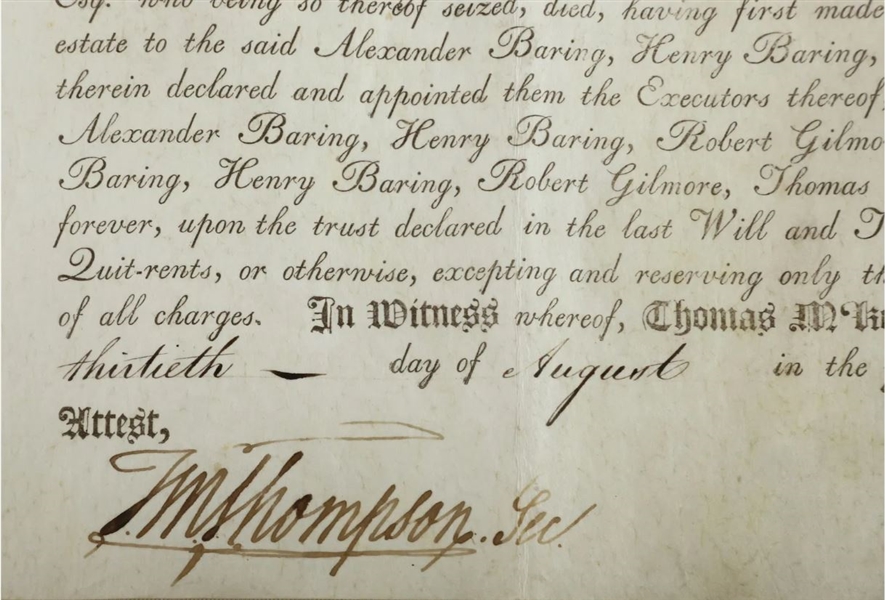 Esq. who being so thereof seized, died, having first made
estate to the said Alexander Baring, Henry Baring,
therein declared and appointed them the Executors thereof
Alexander Baring, Henry Baring, Robert Gilmo
Baring, Henry Baring, Robert Gilmore, Thomas
forever, upon the trust declared in the last Will and T
Quit-rents, or otherwise, excepting and reserving only th
of all charges. In Witness whereof, Thomas M'K
thirtieth — day of August in the
Attest,
T M Thompson. Sec.